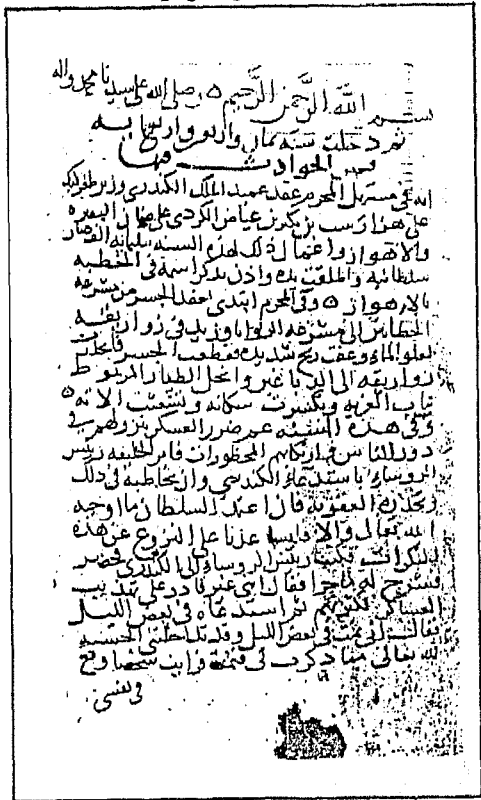 بسم الله الرحمن الرحيم ٥ وصلى الله على سيدنا محمد واله
ثم دخلت سنه ثمان واربعين واربع مايه
فمن الحوادث فيها
انه في مستهل المحرم عقد عميد الملك الكندري وزير طغرلبك
على هزارسب بن بنكير بن عياض الكردي على ضمان البصره
والاهواز واعمال ذلك لهذه السنه بثلثمائه الف دينار
سلطانيه واطلقت يده واذن بذكر اسمه في الخطبه
بالاهواز ٥ وفي المحرم ابتدى بعقد الجسر من مشرعه
الحطابين الى مشرعه الروايا وزيد في زواريقه
لعلو الماء وعصفت ريح شديده فقطعت الجسر فانحدرت
زواريقه الى وانحل الطيار المربوط
بباب الغربه وتكسرت سكانه وتشعثت الاته ٥
وفي هذه السنه عم ضرر العسكر بنزولهم في
دور الناس وارتكابهم المحظورات فامر الخليفه رئيس
الروساء باستدعاء الكندري وان يخاطبه في ذلك
ويحذره العقوبه فان اعتمد السلطان ما اوجبه
الله تعالى والا فليساعدنا على النزوح عن هذه
المنكرات فكتب رئيس الروساء الى الكندري فحضر
فشرح له ما جرا فقال اني غير قادر على تهذيب
العساكر لكثرتهم ثم استدعاه في بعض الليل
فقال اني نمت في بعض الليل وقد تداخلتني الخشيه
لله تعالى مما ذكرت لي فنمت فرايت شخصا وقع
في نفسي